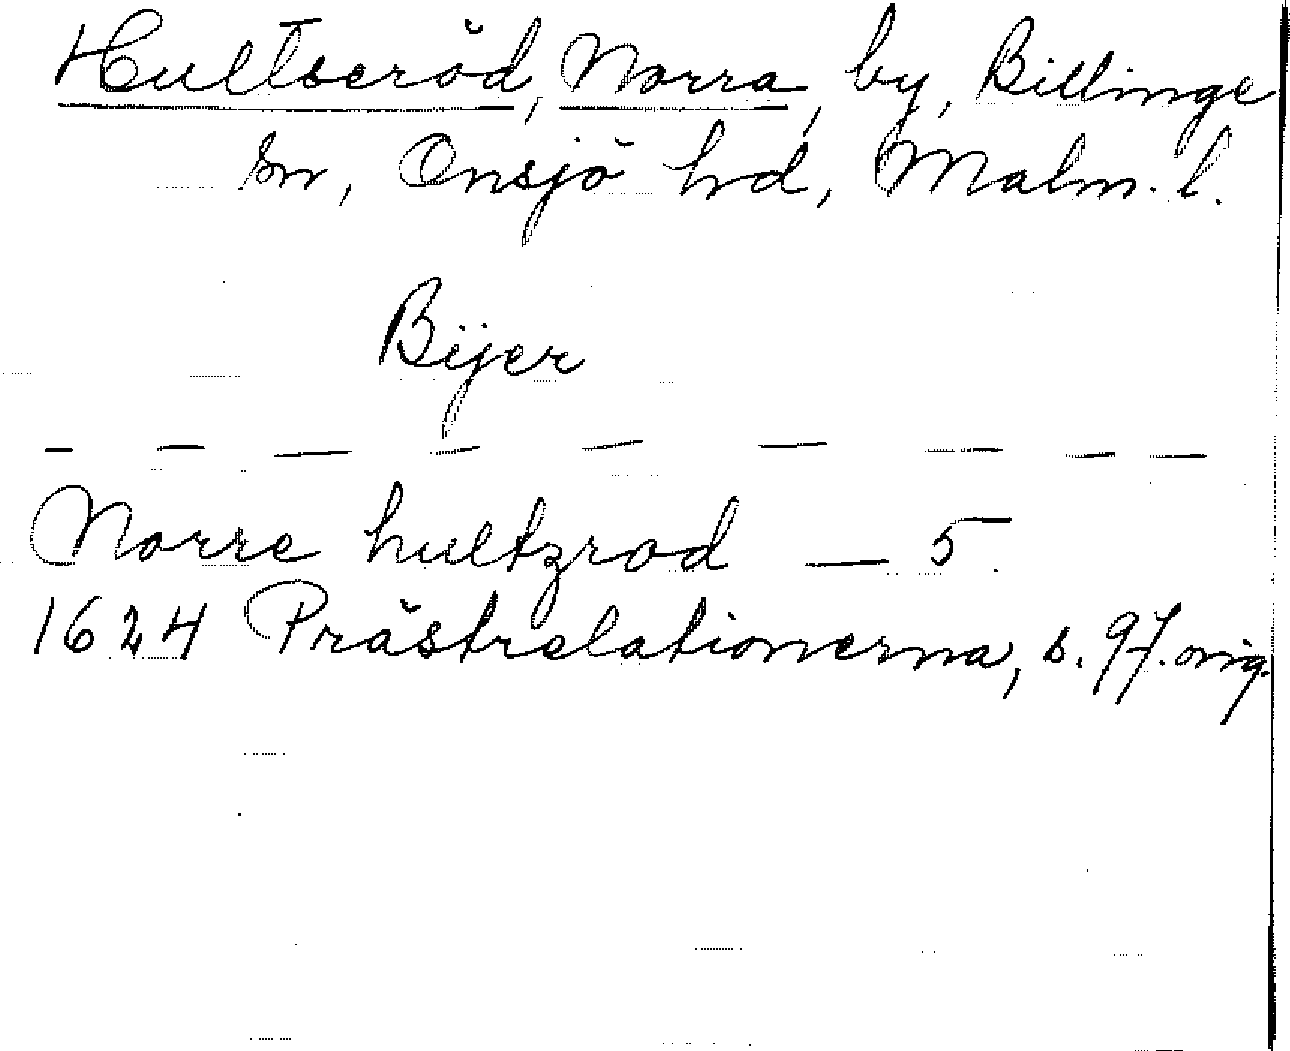 Hultseröd, Norra, by, Billinge
sn, Onsjö hd, Malm. l.
Bijer
— — — — — — — — —
Norre hultzrod — 5
1624 Prästrelationerna, s. 97. orig.